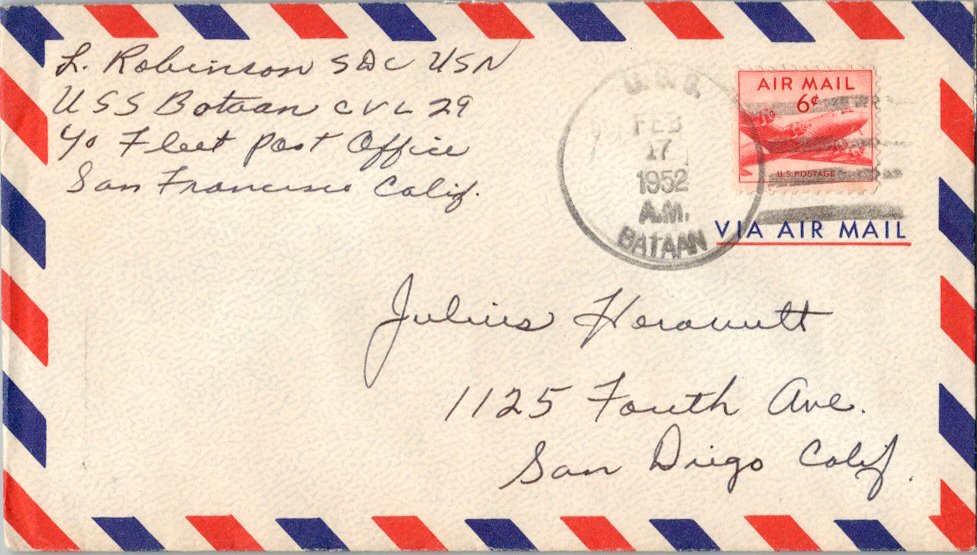 L. Robinson SDC USN
USS Bataan CVL 29
c/o Fleet Post Office
San Francisco Calif.
U.S.S.
FEB
17
1952
A.M.
BATAAN
AIR MAIL
6¢
U.S. POSTAGE
VIA AIR MAIL
Julius
1125 Fouth Ave.
San Diego Calif.